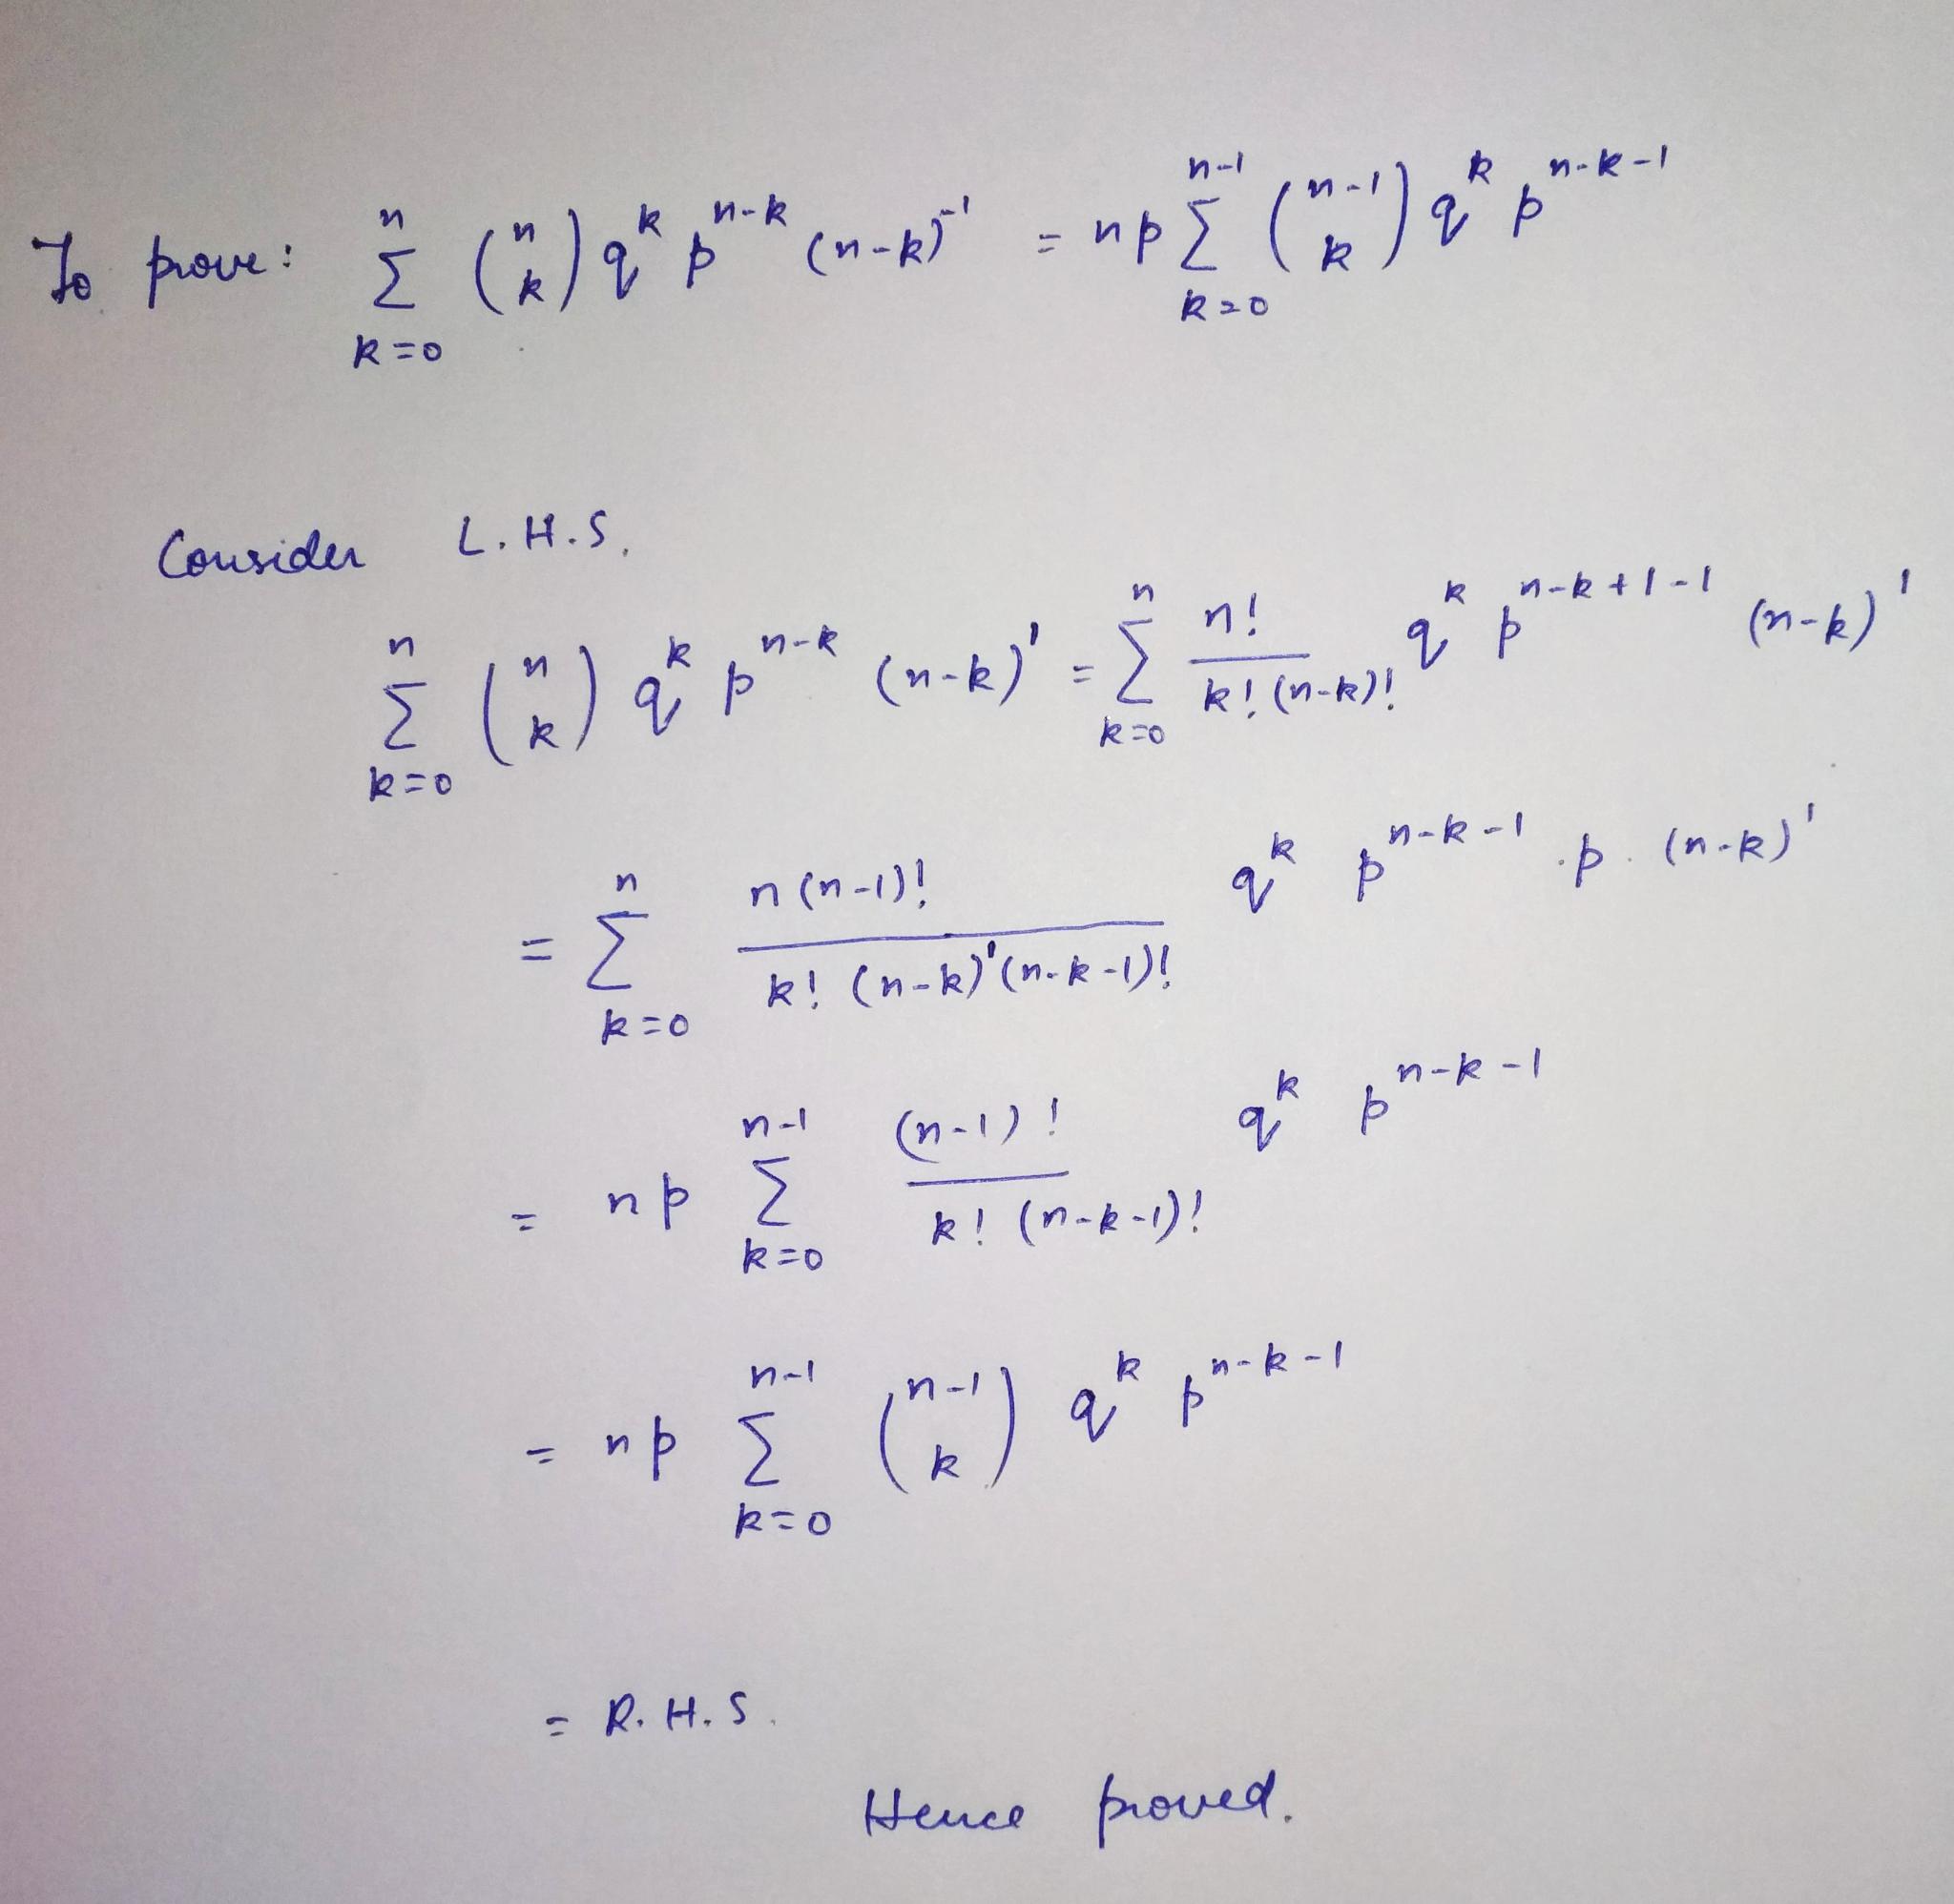 To prove: \sum_{k=0}^{n} \binom{n}{k} q^k p^{n-k} (n-k)^{-1} = np \sum_{k=0}^{n-1} \binom{n-1}{k} q^k p^{n-k-1}
Consider L.H.S.
\sum_{k=0}^{n} \binom{n}{k} q^k p^{n-k} (n-k)^1 = \sum_{k=0}^{n} \frac{n!}{k! (n-k)!} q^k p^{n-k+1-1} (n-k)^1
= \sum_{k=0}^{n} \frac{n(n-1)!}{k! (n-k)^1 (n-k-1)!} q^k p^{n-k-1} . p . (n-k)^1
= np \sum_{k=0}^{n-1} \frac{(n-1)!}{k! (n-k-1)!} q^k p^{n-k-1}
= np \sum_{k=0}^{n-1} \binom{n-1}{k} q^k p^{n-k-1}
= R.H.S.
Hence proved.